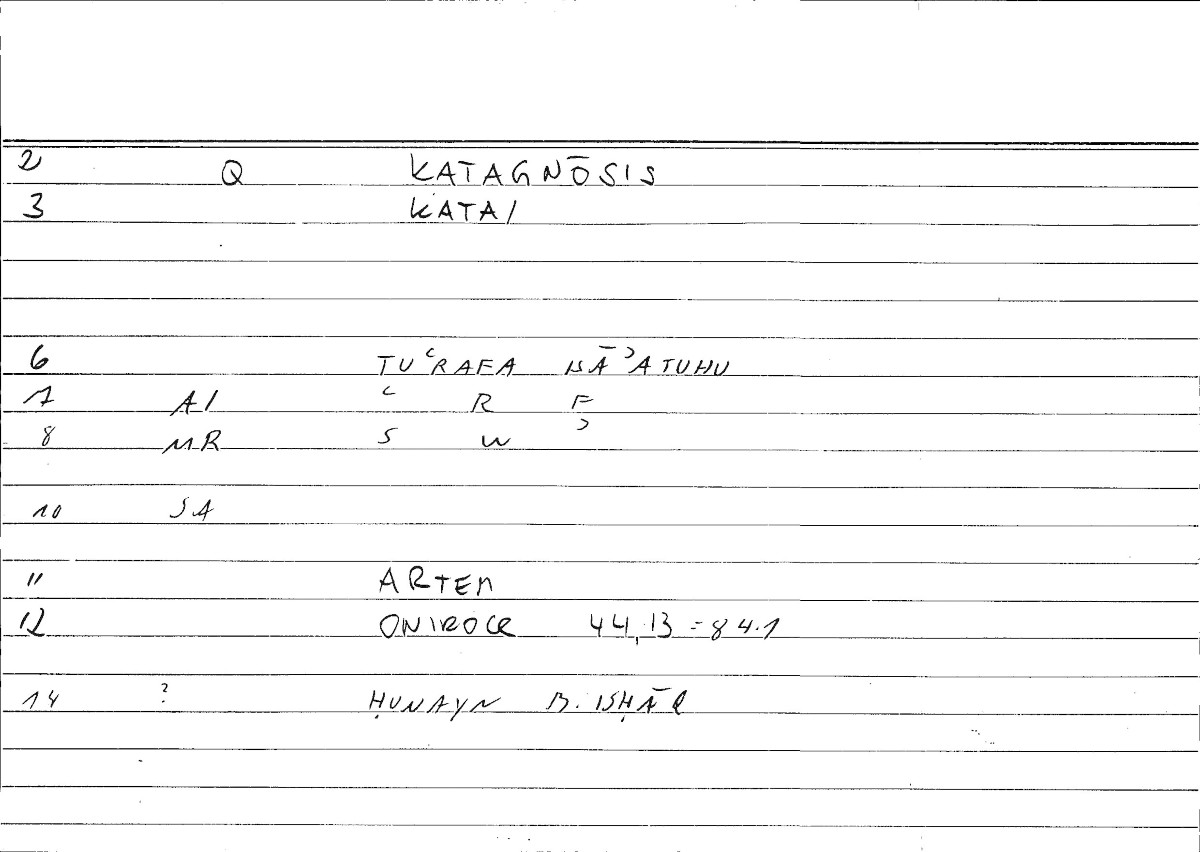 2 Q KATAGNŌSIS
3 KATAI
6 TUʿRAFA SĀʾATUHU
7 AI ʿ R F
8 MR S W ʾ
10 SA
11 ARTEM
12 ONIROCR 44,13 = 84.1
14 ? ḤUNAYN B. ISḤĀQ